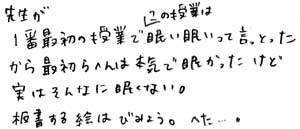 先生が
この授業は
1番最初の授業で眠い眠いって言っとった
から最初らへんは本気で眠かったけど
実はそんなに眠くない。
板書する絵はびみょう。へた…。